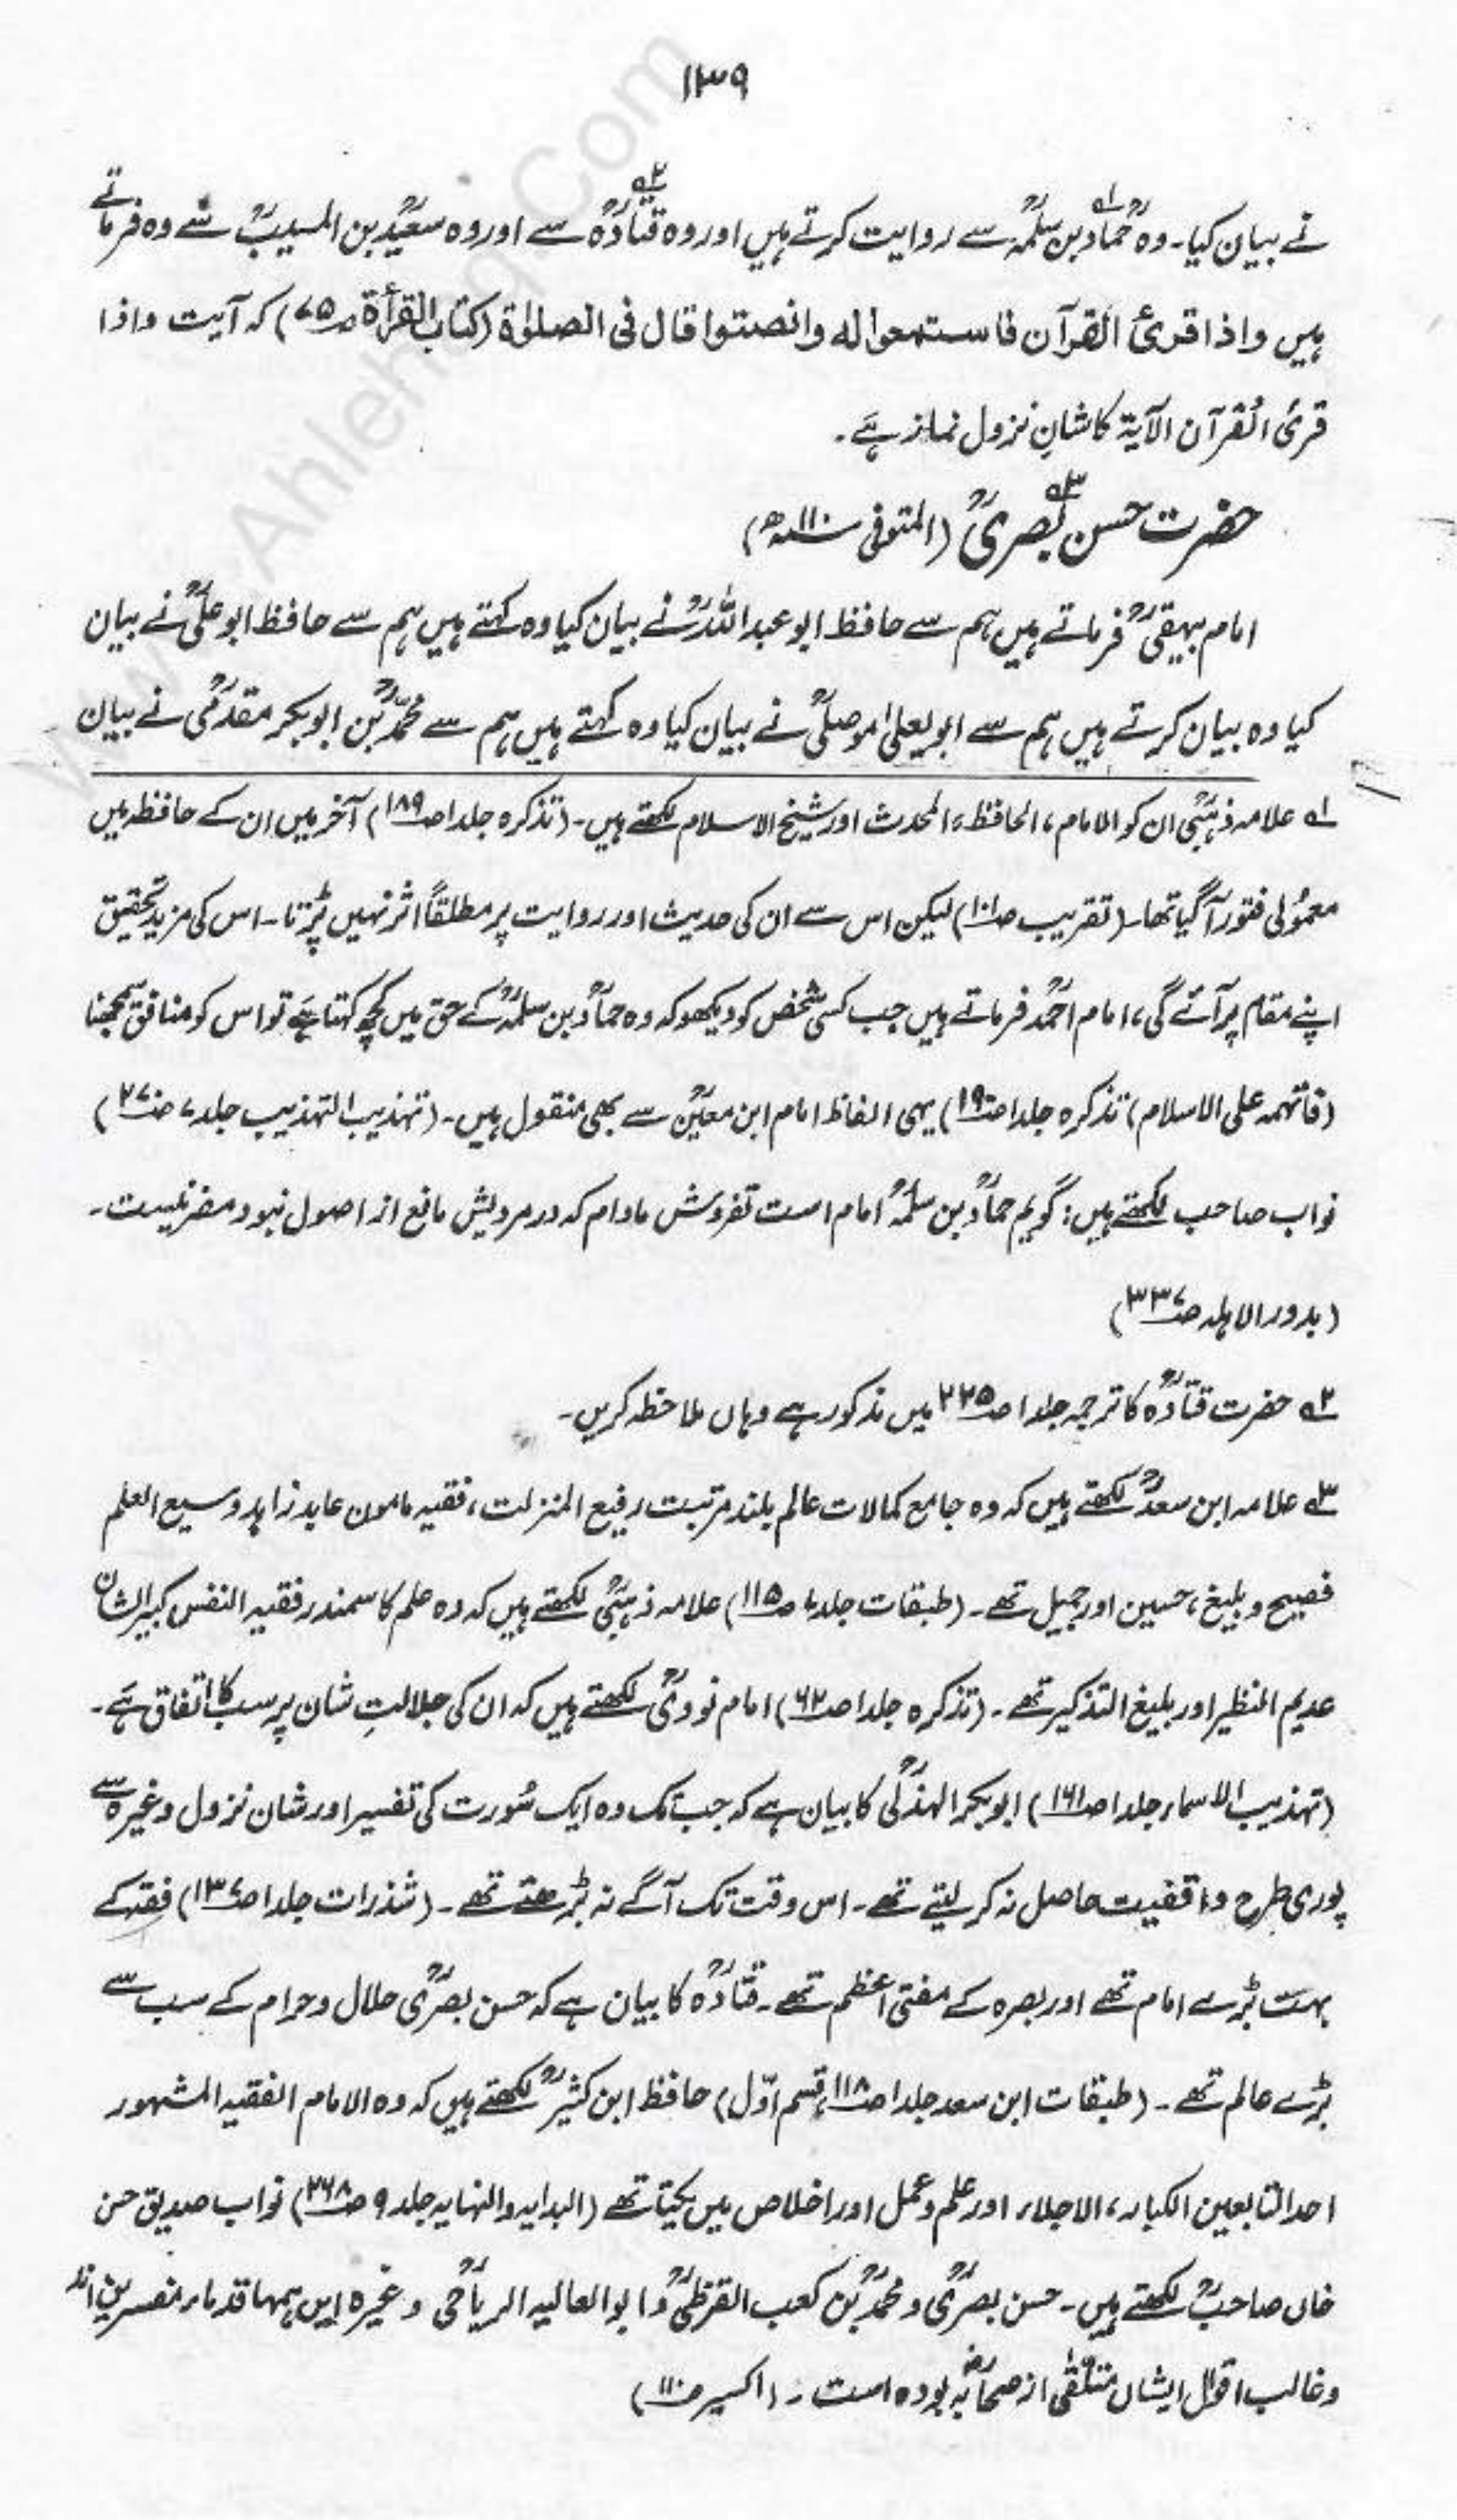 ۱۳۹
نے بیان کیا۔ وہ حمادؒ بن سلمہؒ ؎۱ سے روایت کرتے ہیں اور وہ قتادہؒ ؎۲ سے اور وہ سعیدؒ بن المسیبؒ سے وہ فرماتے
ہیں واذا قرئ القرآن فاستمعوا له وانصتوا قال فی الصلوٰة (کتاب القرأة ص۷۵) کہ آیت واذا
قرئ القرآن الآیۃ کا شانِ نزول نماز ہے۔
حضرت حسن بصریؒ ؎۳ (المتوفی ۱۱۰ھ)
امام بیہقیؒ فرماتے ہیں ہم سے حافظ ابو عبداللہؒ نے بیان کیا وہ کہتے ہیں ہم سے حافظ ابو علیؒ نے بیان
کیا وہ بیان کرتے ہیں ہم سے ابویعلیٰ موصلیؒ نے بیان کیا وہ کہتے ہیں ہم سے محمدؒ بن ابوبکر مقدمیؒ نے بیان
؎۱ علامہ ذہبیؒ ان کو الامام، الحافظ، المحدث اور شیخ الاسلام لکھتے ہیں۔ (تذکرہ جلد ۱ ص۱۸۹) آخر میں ان کے حافظہ میں
معمولی فتور آ گیا تھا۔ (تقریب ص۱۰۱) لیکن اس سے ان کی حدیث اور روایت پر مطلقاً اثر نہیں پڑتا۔ اس کی مزید تحقیق
اپنے مقام پر آئے گی، امام احمدؒ فرماتے ہیں جب کسی شخص کو دیکھو کہ وہ حمادؒ بن سلمہؒ کے حق میں کچھ کہتا ہے تو اس کو منافق سمجھنا
(فاتهمه علی الاسلام) تذکرہ جلد ۱ ص۱۹۰) یہی الفاظ امام ابن معینؒ سے بھی منقول ہیں۔ (تہذیب التہذیب جلد ۷ ص۲۷۰)
نواب صاحب لکھتے ہیں: گویم حمادؒ بن سلمہؒ امام است تفردش مادام کہ در مرویش مانع از اصول نبود مضر نیست۔
(بدور الاہلہ ص۳۳۷)
؎۲ حضرت قتادہؒ کا ترجمہ جلد ۱ ص۲۲۵ میں مذکور ہے وہاں ملاحظہ کریں۔
؎۳ علامہ ابن سعدؒ لکھتے ہیں کہ وہ جامع کمالات عالم بلند مرتبت رفیع المنزلت، فقیہ مامون عابد زاہد وسیع العلم
فصیح و بلیغ، حسین اور جمیل تھے۔ (طبقات جلد ۷ ص۱۱۵) علامہ ذہبیؒ لکھتے ہیں کہ وہ علم کا سمندر فقیہ النفس کبیر الشان
عدیم النظیر اور بلیغ التذکیر تھے۔ (تذکرہ جلد ۱ ص۶۲) امام نوویؒ لکھتے ہیں کہ ان کی جلالتِ شان پر سب کا اتفاق ہے۔
(تہذیب الاسماء جلد ۱ ص۱۶۱) ابوبکر الہذلیؒ کا بیان ہے کہ جب تک وہ ایک سورت کی تفسیر اور شان نزول وغیرہ سے
پوری طرح واقفیت حاصل نہ کر لیتے تھے۔ اس وقت تک آگے نہ بڑھتے تھے۔ (شذرات جلد ۱ ص۱۳۷) فقہ کے
بہت بڑے امام تھے اور بصرہ کے مفتی اعظم تھے۔ قتادہؒ کا بیان ہے کہ حسن بصریؒ حلال و حرام کے سب سے
بڑے عالم تھے۔ (طبقات ابن سعد جلد ۱ ص۱۱۸ قسم اوّل) حافظ ابن کثیرؒ لکھتے ہیں کہ وہ الامام الفقیہ المشہور
احد التابعین الکبار، الاجلاء اور علم و عمل اور اخلاص میں یکتا تھے (البدایہ والنہایہ جلد ۹ ص۲۶۸) نواب صدیق حسن
خاں صاحبؒ لکھتے ہیں۔ حسن بصریؒ و محمدؒ بن کعب القرظیؒ و ابو العالیہ الریاحیؒ وغیرہ ایں ہمہا قدماء مفسرین اند
و غالب اقوال ایشاں متلقی از صحابہؓ بودہ است۔ (اکسیر ص۱۱۰)
www.Ahlehaq.Com